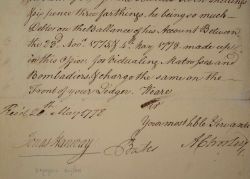 Six pence three farthings, he being so much
Debtor on the Ballance of his Account Between
the 23. Nov.r 1775 & 4. May 1778 made up
in this Office for Victualing Matrosses and
Bombardiers & charge the same on the
Front of your Ledger. We are
Your most h.ble Servants
Jonas Hanway
Bates